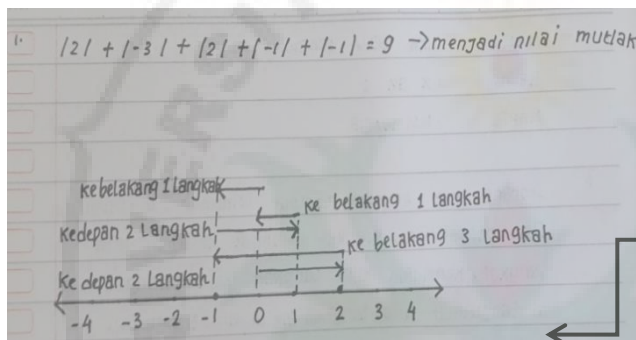 1. |2| + |-3| + |2| + |-1| + |-1| = 9 → menjadi nilai mutlak
Kebelakang 1 langkah
Ke belakang 1 langkah
Kedepan 2 Langkah
Ke belakang 3 Langkah
Ke depan 2 Langkah
-4 -3 -2 -1 0 1 2 3 4